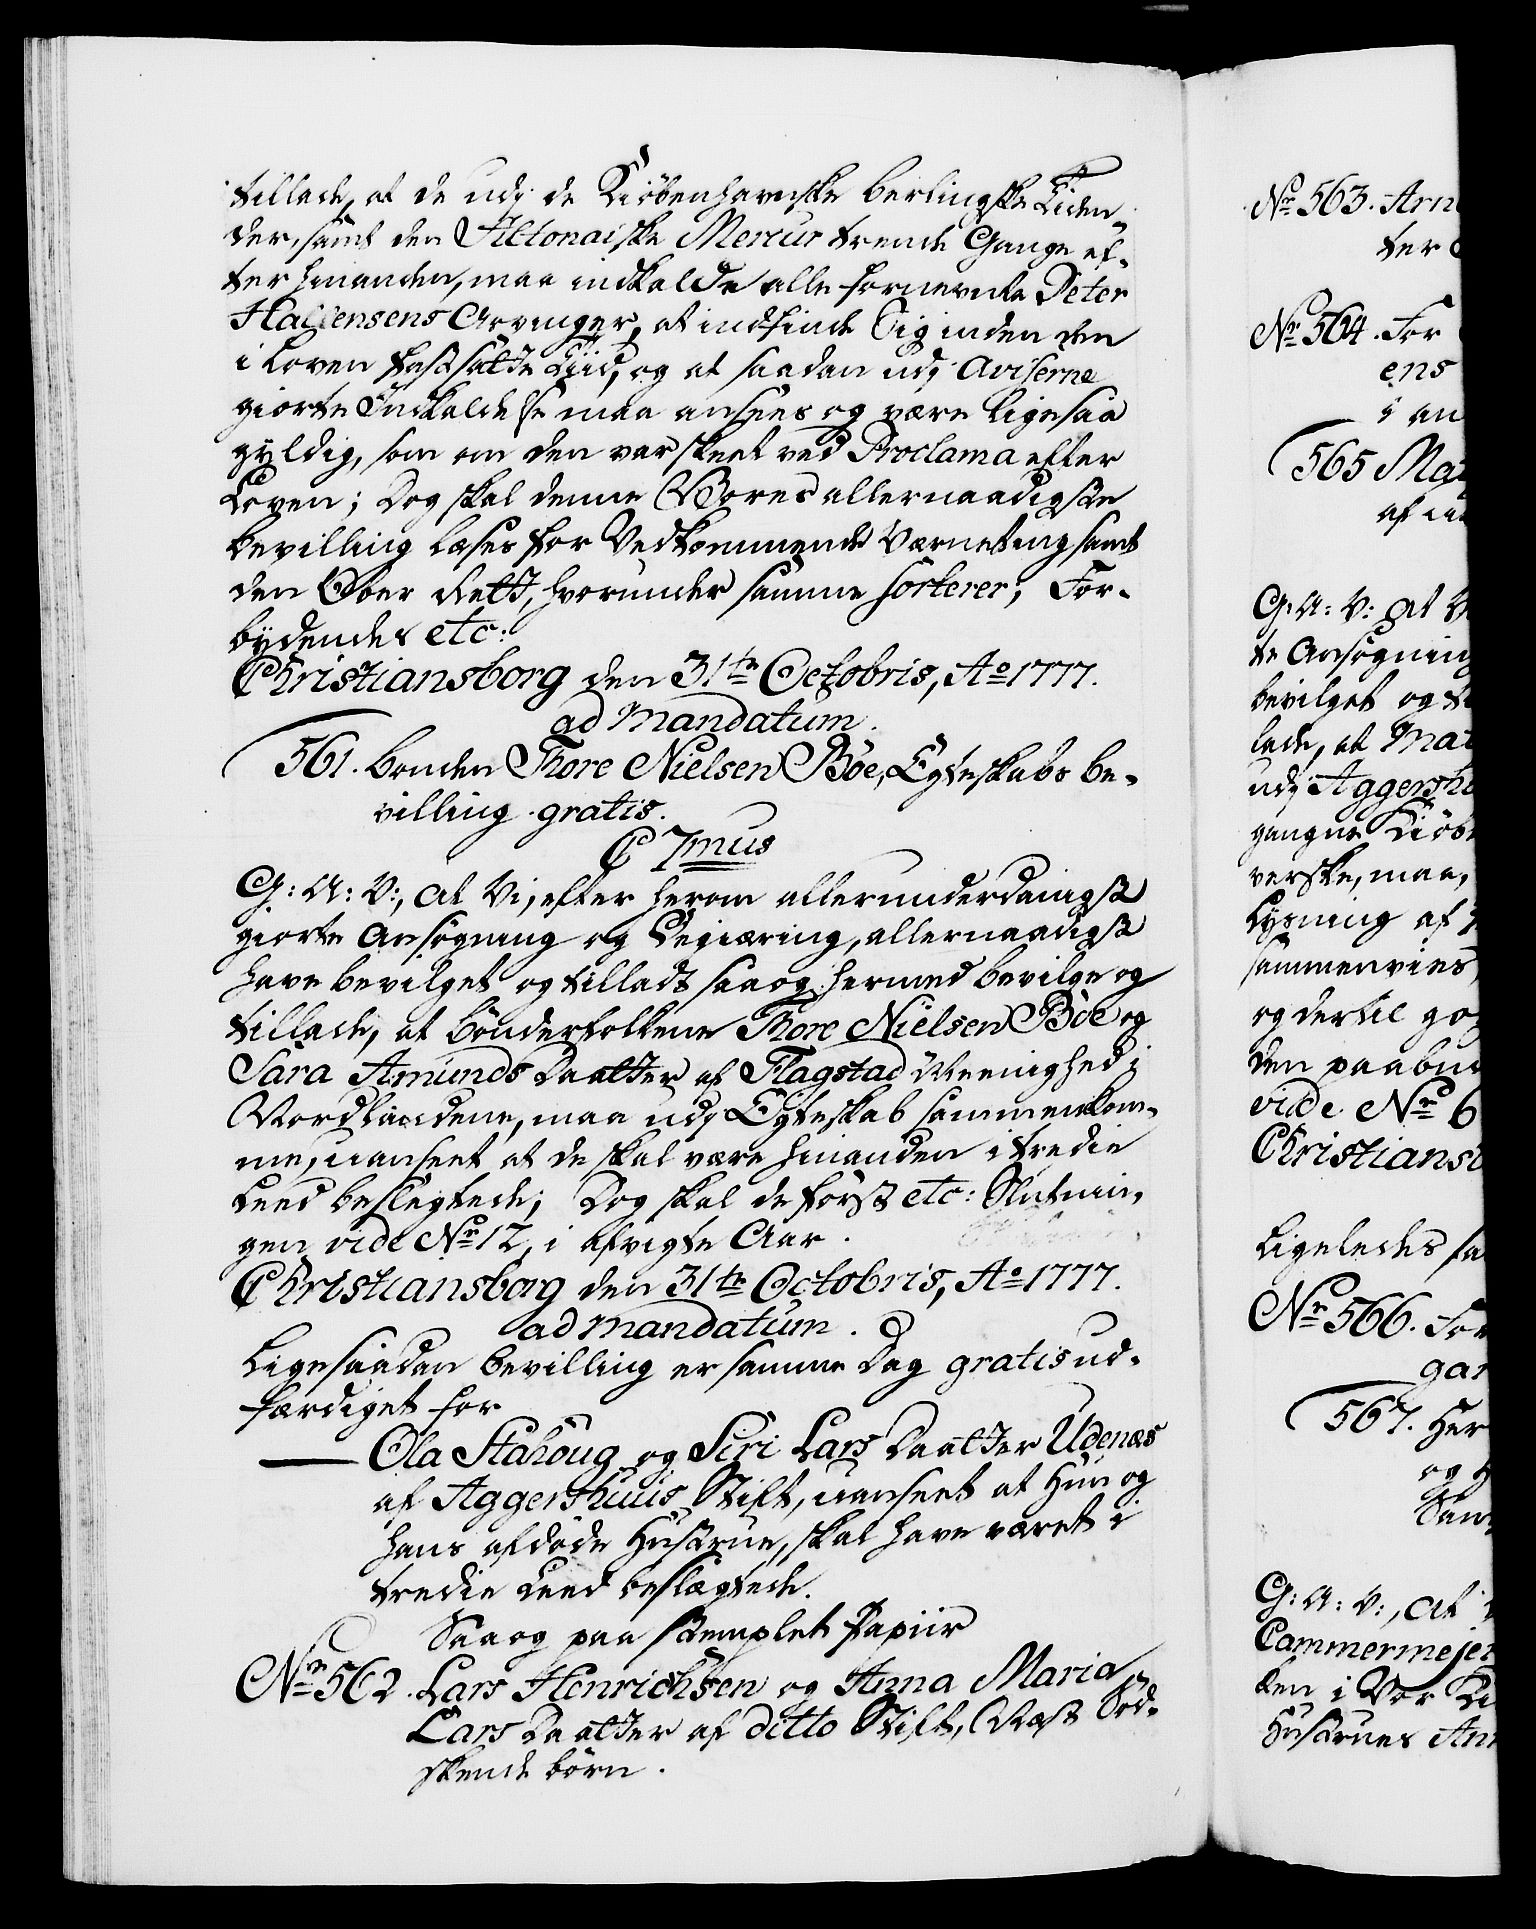 tillade, at de udj de Kiöbenhavnske Berlingske Tiden-
der, samt den Altonaiske Mercur trende Gange ef-
ter hinanden, maa indkalde alle fornevnte Peter
Hallensens Arvinger, at indfinde Sig inden den
i Loven fastsatte Tiid, og at saadan udj Aviserne
giorte Indkaldelse maa ansees og være ligesaa
gyldig, som om den var skeet ved Proclama efter
Loven; Dog skal denne Vores allernaadigste
Bevilling læses for Vedkommende Værneting samt
den Ober Rett, hvorunder samme sorterer; For-
bydendes etc:
Christiansborg den 31te Octobris, Ao 1777.
ad mandatum.
561. Bonden Thore Nielsen Böe, Egteskabs Be-
villing gratis.
C 7mus
G: A: V:, at Vi, efter herom allerunderdanigst
giorte Ansögning og Begiæring, allernaadigst
have bevilget og tilladt saa og hermed bevilge og
tillade, at Bönderfolkene Thore Nielsen Böe og
Sara Amunds Daatter af Flagstad Meenighed i
Nordlandene, maa udj Egteskab sammenkom-
me, uanseet at de skal være hinanden i tredie
Leed beslegtede; Dog skal de först etc: Slutnin-
gen vide No 12, i afvigte Aar.
Christiansborg den 31te Octobris, Ao 1777.
ad mandatum.
Ligesaadan Bevilling er samme Dag gratis ud-
færdiget for
Ola Stahoug og Siri Lars Daatter Udenæs
af Aggershuus Stift, uanseet at Hun og
hans afdöde Hustrue, skal have været i
tredie Leed beslægtede.
Saa og paa stemplet Papiir
No 562. Lars Henrichsen og Anna Maria
Lars Daatter af ditto Stift, Næst Söd-
skende börn.
No 563. Arn
ter
No 564. For
ens
i an
565 Mat
af
G: A: V: at V
te Ansögning
bevilget og t
lade, at Mat
udj Aggersh
gangne Kiöb
verske, maa,
Lysning af
sammenvies
og dertil go
den paabu
vide No 6
Christiansb
Ligeledes sa
No 566. For
gar
567. Her
og H
Sam
G: A: V:, at
Cammermejer
ken i Vor Ki
Hustrues Ann